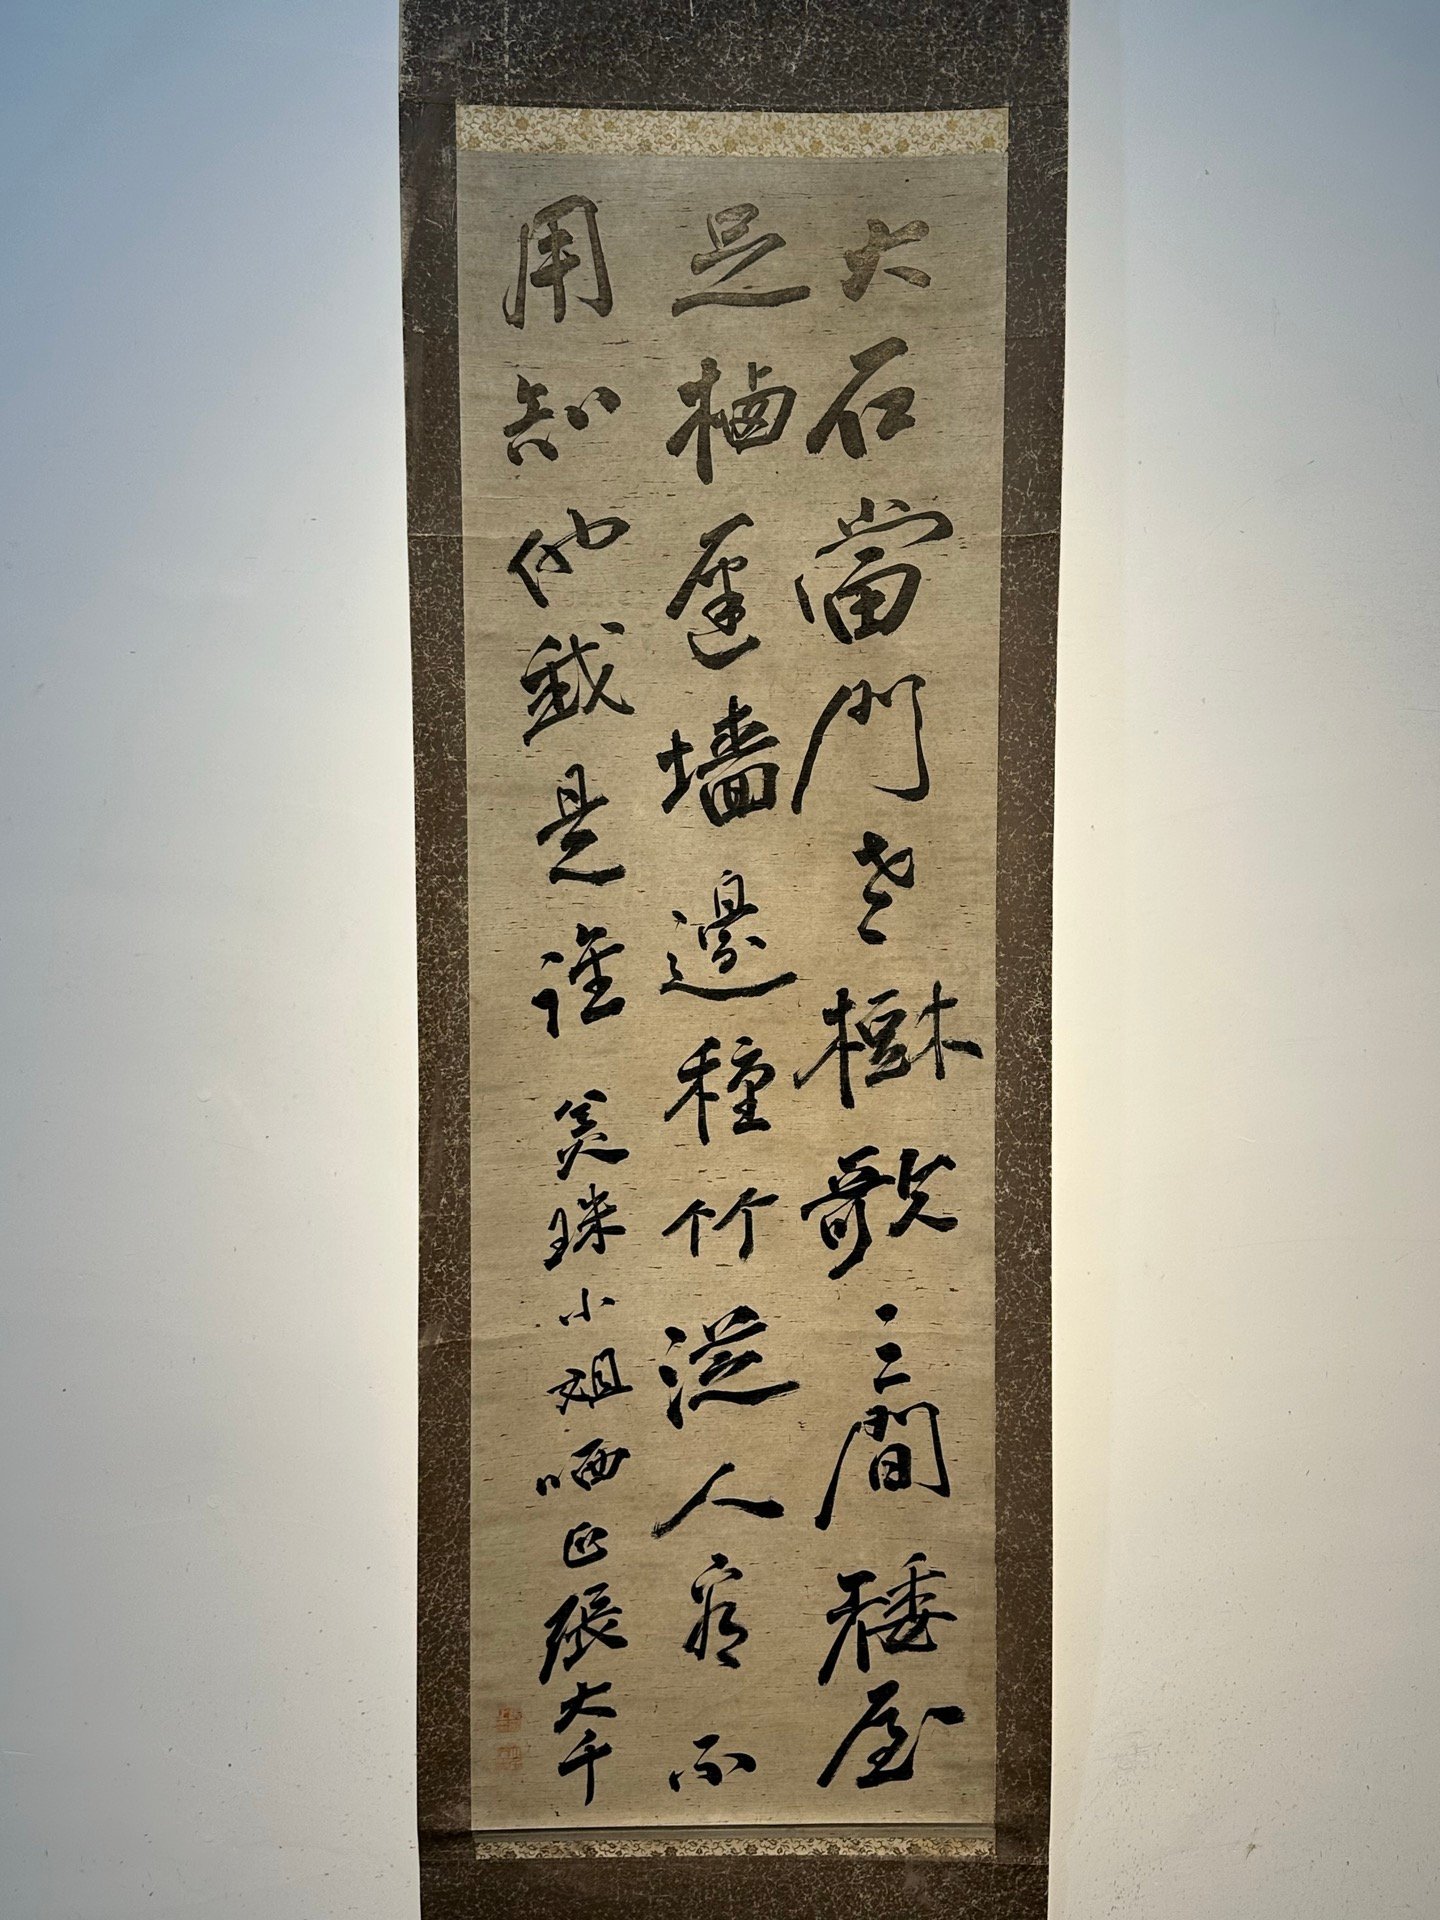 大石當門老樹欹三間矮屋
足栖遲墻邊種竹從人看不
用知他我是誰 美珠小姐哂正張大千